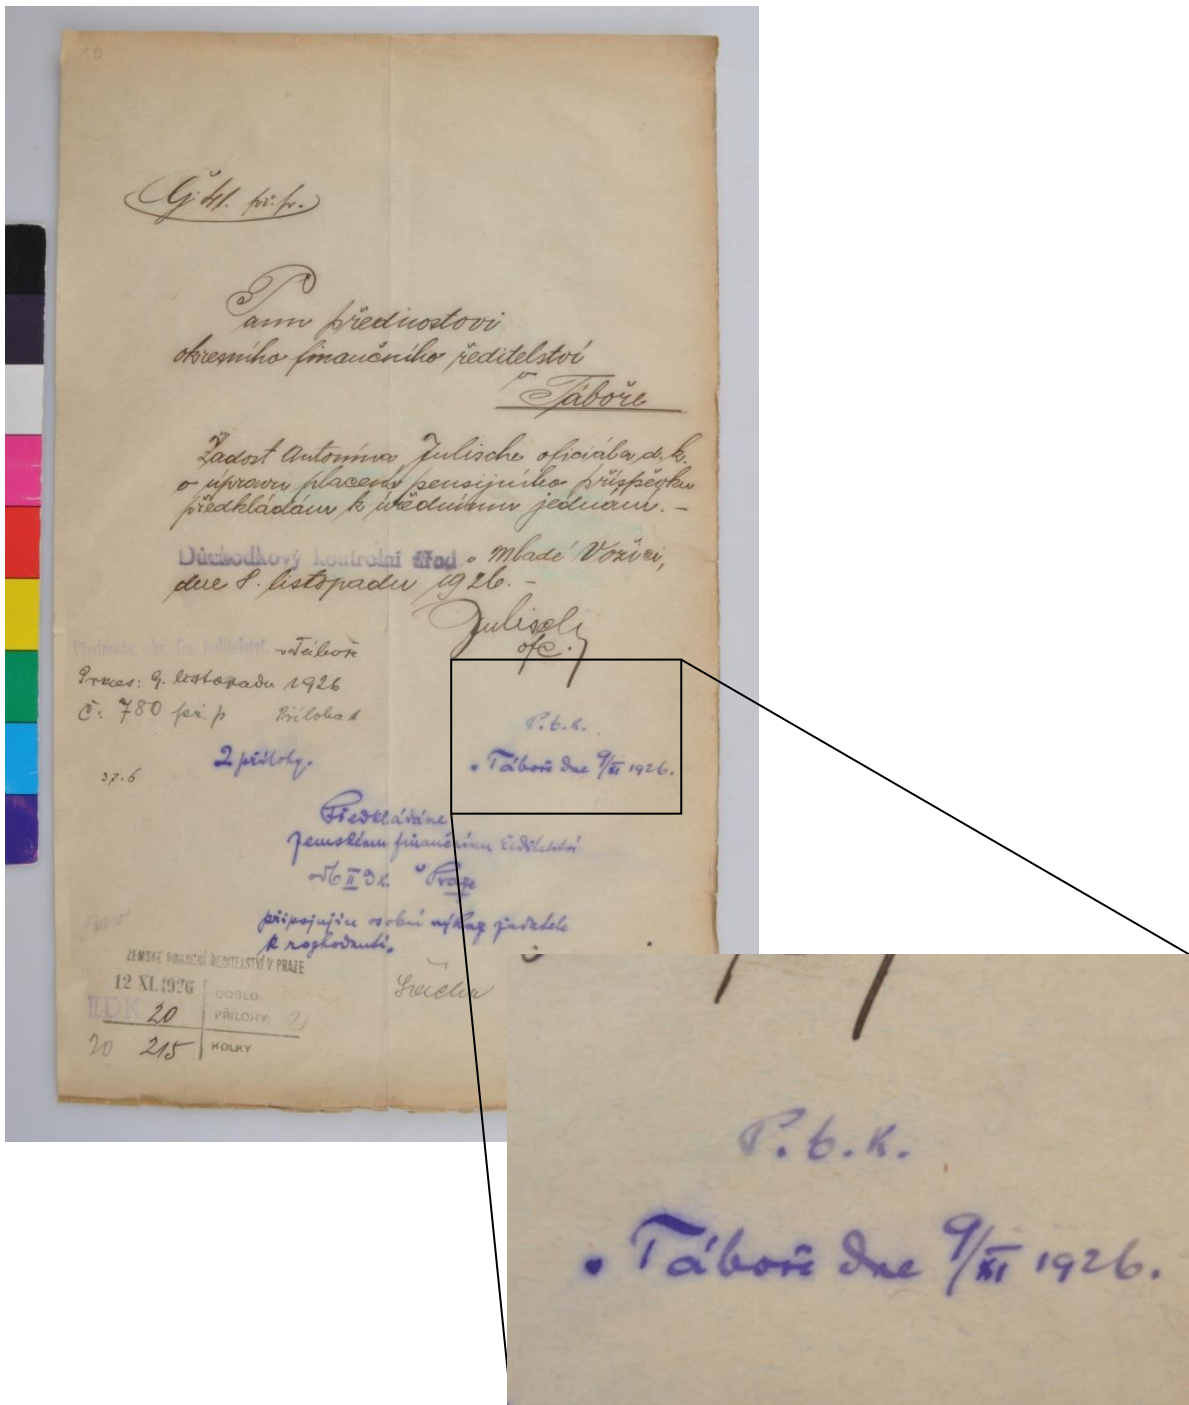 10
Čj. 41. pr. fr.
Panu přednostovi
okresního finančního ředitelství
v Táboře
Žádost Antonína Julische oficiála d. k.
o úpravu placení pensijního příspěvku
předkládám k úřednímu jednání. –
Důchodkový kontrolní úřad v Mladé Vožici,
dne 8. listopadu 1926. –
Julisch
ofc.
Přednosta okr. fin. ředitelství v Táboře
Praes: 9. listopadu 1926
Č: 780 pr. p Příloha 1
P.b.k.
2 přílohy.
v Táboře dne 9/XI 1926.
37.6
Předkládáno
zemskému finančnímu ředitelství
odb II D k. v Praze
připojujíce osobní výkaz žadatele
k rozhodnutí.
ZEMSKÉ FINANČNÍ ŘEDITELSTVÍ V PRAZE
12 XI. 1926 DOŠLO:
II.DK 20 PŘÍLOHY: 2
20 215 KOLKY
P.b.k.
v Táboře dne 9/XI 1926.